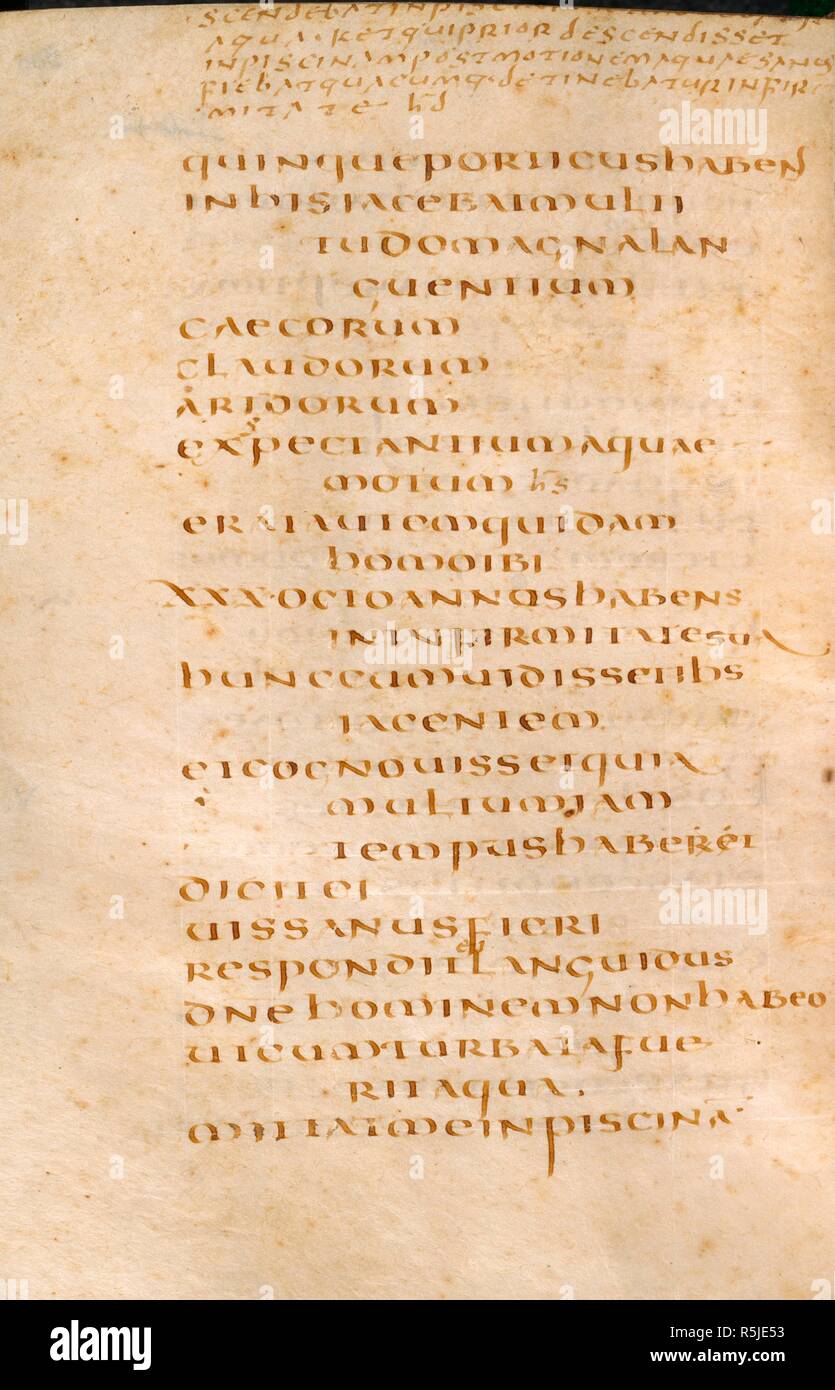 SCENDEBATINPISCI
AQUA·RETQUIPRIORDESCENDISSET
INPISCINAMPOSTMOTIONEMAQUAESANUS
FIEBATQUACUMQ·DETINEBATURINFIR
MITATE hd
QUINQUEPORTICUSHABEN
INHISIACEBATMULTI
TUDOMAGNALAN
GUENTIUM
CAECORUM
CLAUDORUM
ARIDORUM
EXPECTANTIUMAQUAE
MOTUM hs
ERATAUTEMQUIDAM
HOMOIBI
XXX·OCTOANNOSHABENS
ININFIRMITATESUA
HUNCCUMUIDISSETIHS
IACENTEM
ETCOGNOUISSETQUIA
MULTUMIAM
TEMPUSHABERET
DICITEI
UISSANUSFIERI
RESPONDITEILANGUIDUS
DNEHOMINEMNONHABEO
UTCUMTURBATAFUE
RITAQUA·
MITTATMEINPISCINA
alamy
Image ID: R5JE53
www.alamy.com